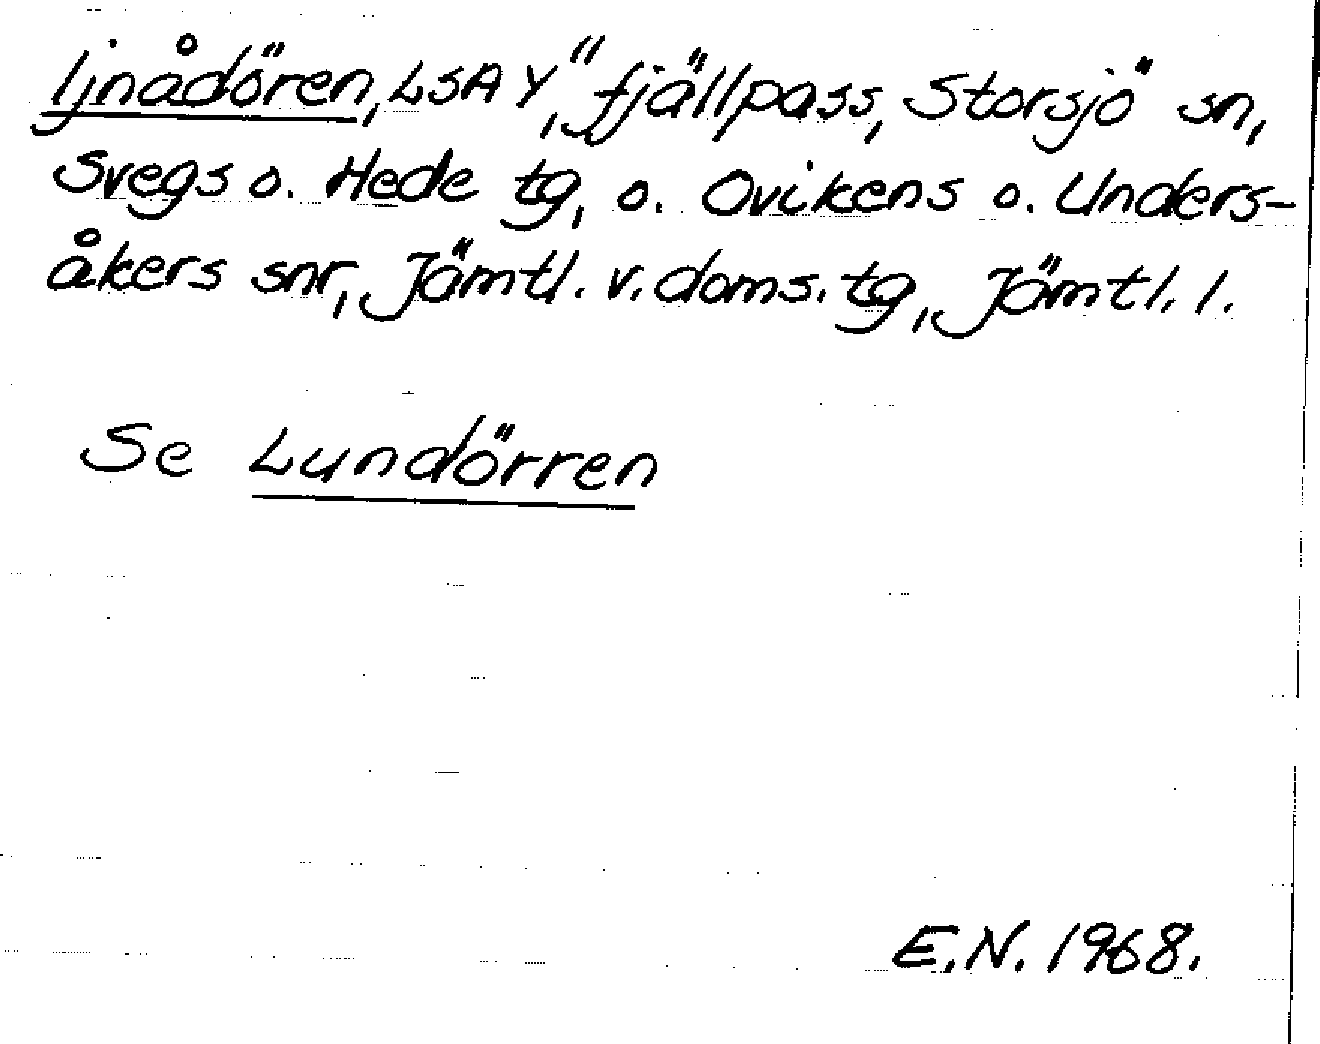 Ijnådören, LSA Y, "fjällpass, Storsjö" sn,
Svegs o. Hede tg, o. Ovikens o. Unders-
åkers snr, Jämtl. v. doms. tg, Jämtl. l.
Se Lundörren
E.N. 1968.